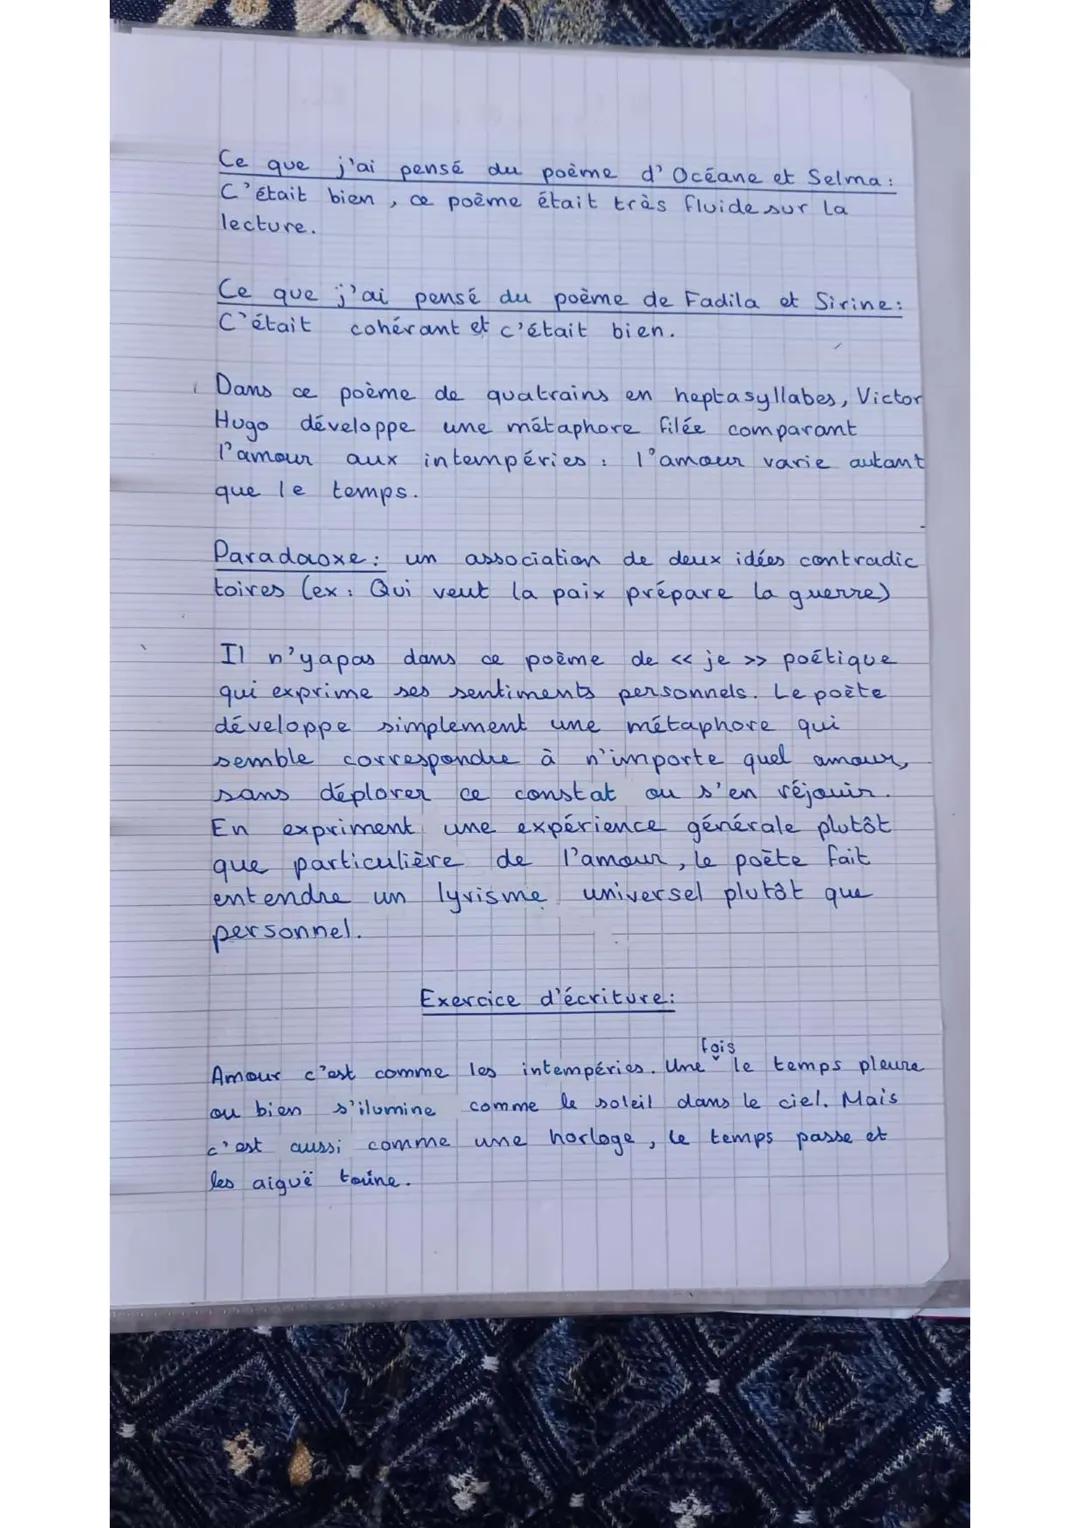 Ce que j'ai pensé du poème d'Océane et Selma:
C'était bien, ce poème était très fluide sur la
lecture.
Ce que j'ai pensé du poème de Fadila et Sirine:
C'était cohérant et c'était bien.
Dans ce poème de quatrains en heptasyllabes, Victor
Hugo développe une métaphore filée comparant
l'amour aux intempéries : l'amour varie autant
que le temps.
Paradaoxe: un association de deux idées contradic
toires (ex: Qui veut la paix prépare la guerre)
Il n'yapas dans ce poème de << je >> poétique
qui exprime ses sentiments personnels. Le poète
développe simplement une métaphore qui
semble correspondre à n'importe quel amour,
sans déplorer ce constat ou s'en réjouir.
En expriment une expérience générale plutôt
que particulière de l'amour, le poète fait
entendre un lyrisme universel plutôt que
personnel.
Exercice d'écriture:
Amour c'est comme les intempéries. Une fois le temps pleure
ou bien s'ilumine comme le soleil dans le ciel. Mais
c'est aussi comme une horloge, le temps passe et
les aiguë tourne.